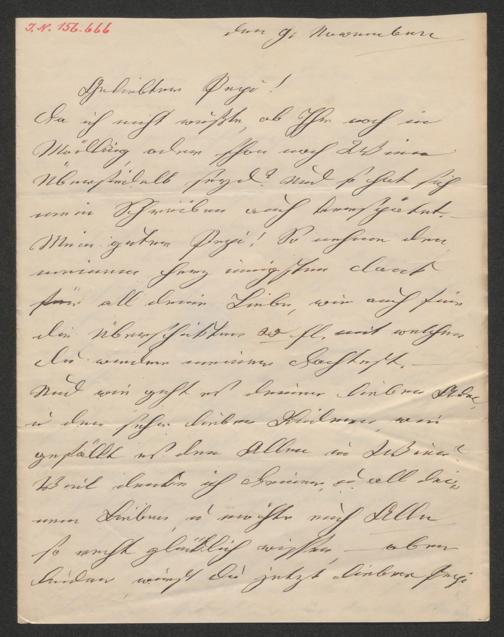 I.N. 156.666
den 9. November
Geliebter Pepi!
Da ich nicht wußte, ob Ihr noch in
Mödling oder schon nach Wien
übersiedelt seyd? Und so hat sich
mein Schreiben auch verspätet.
Mein guter Pepi! So nehme den
meinen Herz innigsten Dank
für all deine Liebe, wie auch für
die überschickten 20 fl. mit welchen
du wieder meiner dachtest.
Und wie geht es deiner lieben
u den lieben Kindern, wie
gefällt es den Allen in Wien?
Weil denke ich deiner, u all dei-
nen Lieben, u möchte euch Alle
so recht glücklich wissen, – aber
leider, wirst du jetzt lieber Pepi